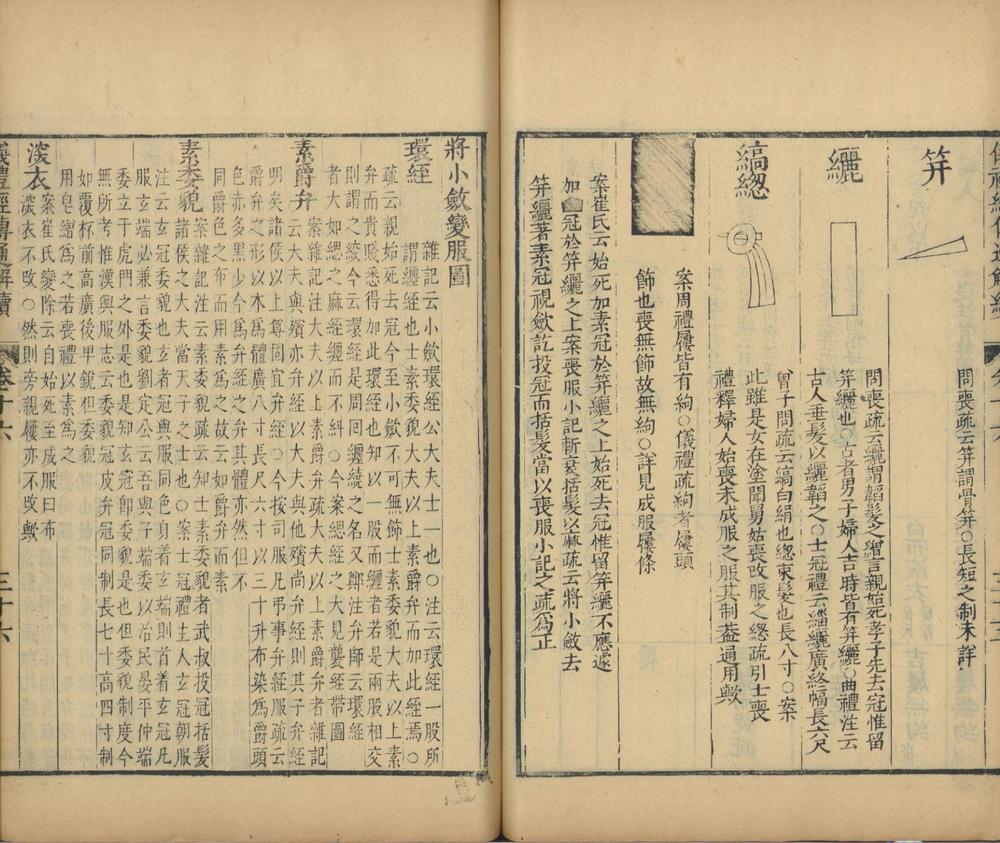 笄
問喪疏云笄謂骨笄○長短之制未詳
纚
問喪疏云纚謂韜髮之繒言親始死孝子先去冠惟留
笄纚也○古者男子婦人吉時皆有笄纚○曲禮注云
古人垂髮以纚韜之○士冠禮云緇纚廣終幅長六尺
縞總
曾子問疏云縞白絹也總束髮也長八寸○案
此雖是女在塗聞舅姑喪改服之總疏引士喪
禮釋婦人始喪未成服之服其制蓋通用歟
案周禮屨皆有絇○儀禮疏絇者屨頭
飾也喪無飾故無絇○詳見成服屨條
案崔氏云始死加素冠於笄纚之上始死去冠惟留笄纚不應遽
加 冠於笄纚之上案喪服小記斬衰括髮以麻疏云將小斂去
笄纚著素冠視斂訖投冠而括髮當以喪服小記之疏為正
將小斂變服圖
環絰
雜記云小斂環絰公大夫士一也○注云環絰一股所
謂纏絰也士素委貌大夫以上素爵弁而加此絰焉○
疏云親始死去冠今至小斂不可無飾士素委貌大夫以上素
弁而貴賤悉得加此環絰也知以一股而纏者若是兩股相交
則謂之絞今云環絰是周回纏繞之名又鄭注弁師云環絰
者大如緦之麻絰纏而不糾○今案緦絰之大見襲絰帶圖
素爵弁
案雜記注大夫以上素爵弁疏大夫以上素爵弁者雜記
云大夫與殯亦弁絰以大夫與他殯尚弁絰則其子弁絰
明矣諸侯以上尊固宜弁絰○今按司服凡弔事弁絰服疏云
爵弁之形以木為體廣八寸長尺六寸以三十升布染為爵頭
色赤多黑少今為弁絰之弁其體亦然但不
同爵色之布而用素為之故云如爵弁而素
素委貌
案雜記注云素委貌疏云知士素委貌者武叔投冠括髮
諸侯之大夫當天子之士也○案士冠禮主人玄冠朝服
注云玄冠委貌也玄者冠與服同色身着玄端則首着玄冠凡
服玄端必兼言委貌劉定公云吾與子端委以治民晏平仲端
委立于虎門之外是也是知玄冠卽委貌是也但委貌制度今
無所考惟漢輿服志云委貌冠皮弁冠同制長七寸高四寸制
如覆杯前高廣後卑銳但委貌
用皂繒為之若喪禮以素為之
深衣
案崔氏變除云自始死至成服白布
深衣不改○然則旁親屨亦不改歟
儀禮經傳通解續
卷十六
三十六